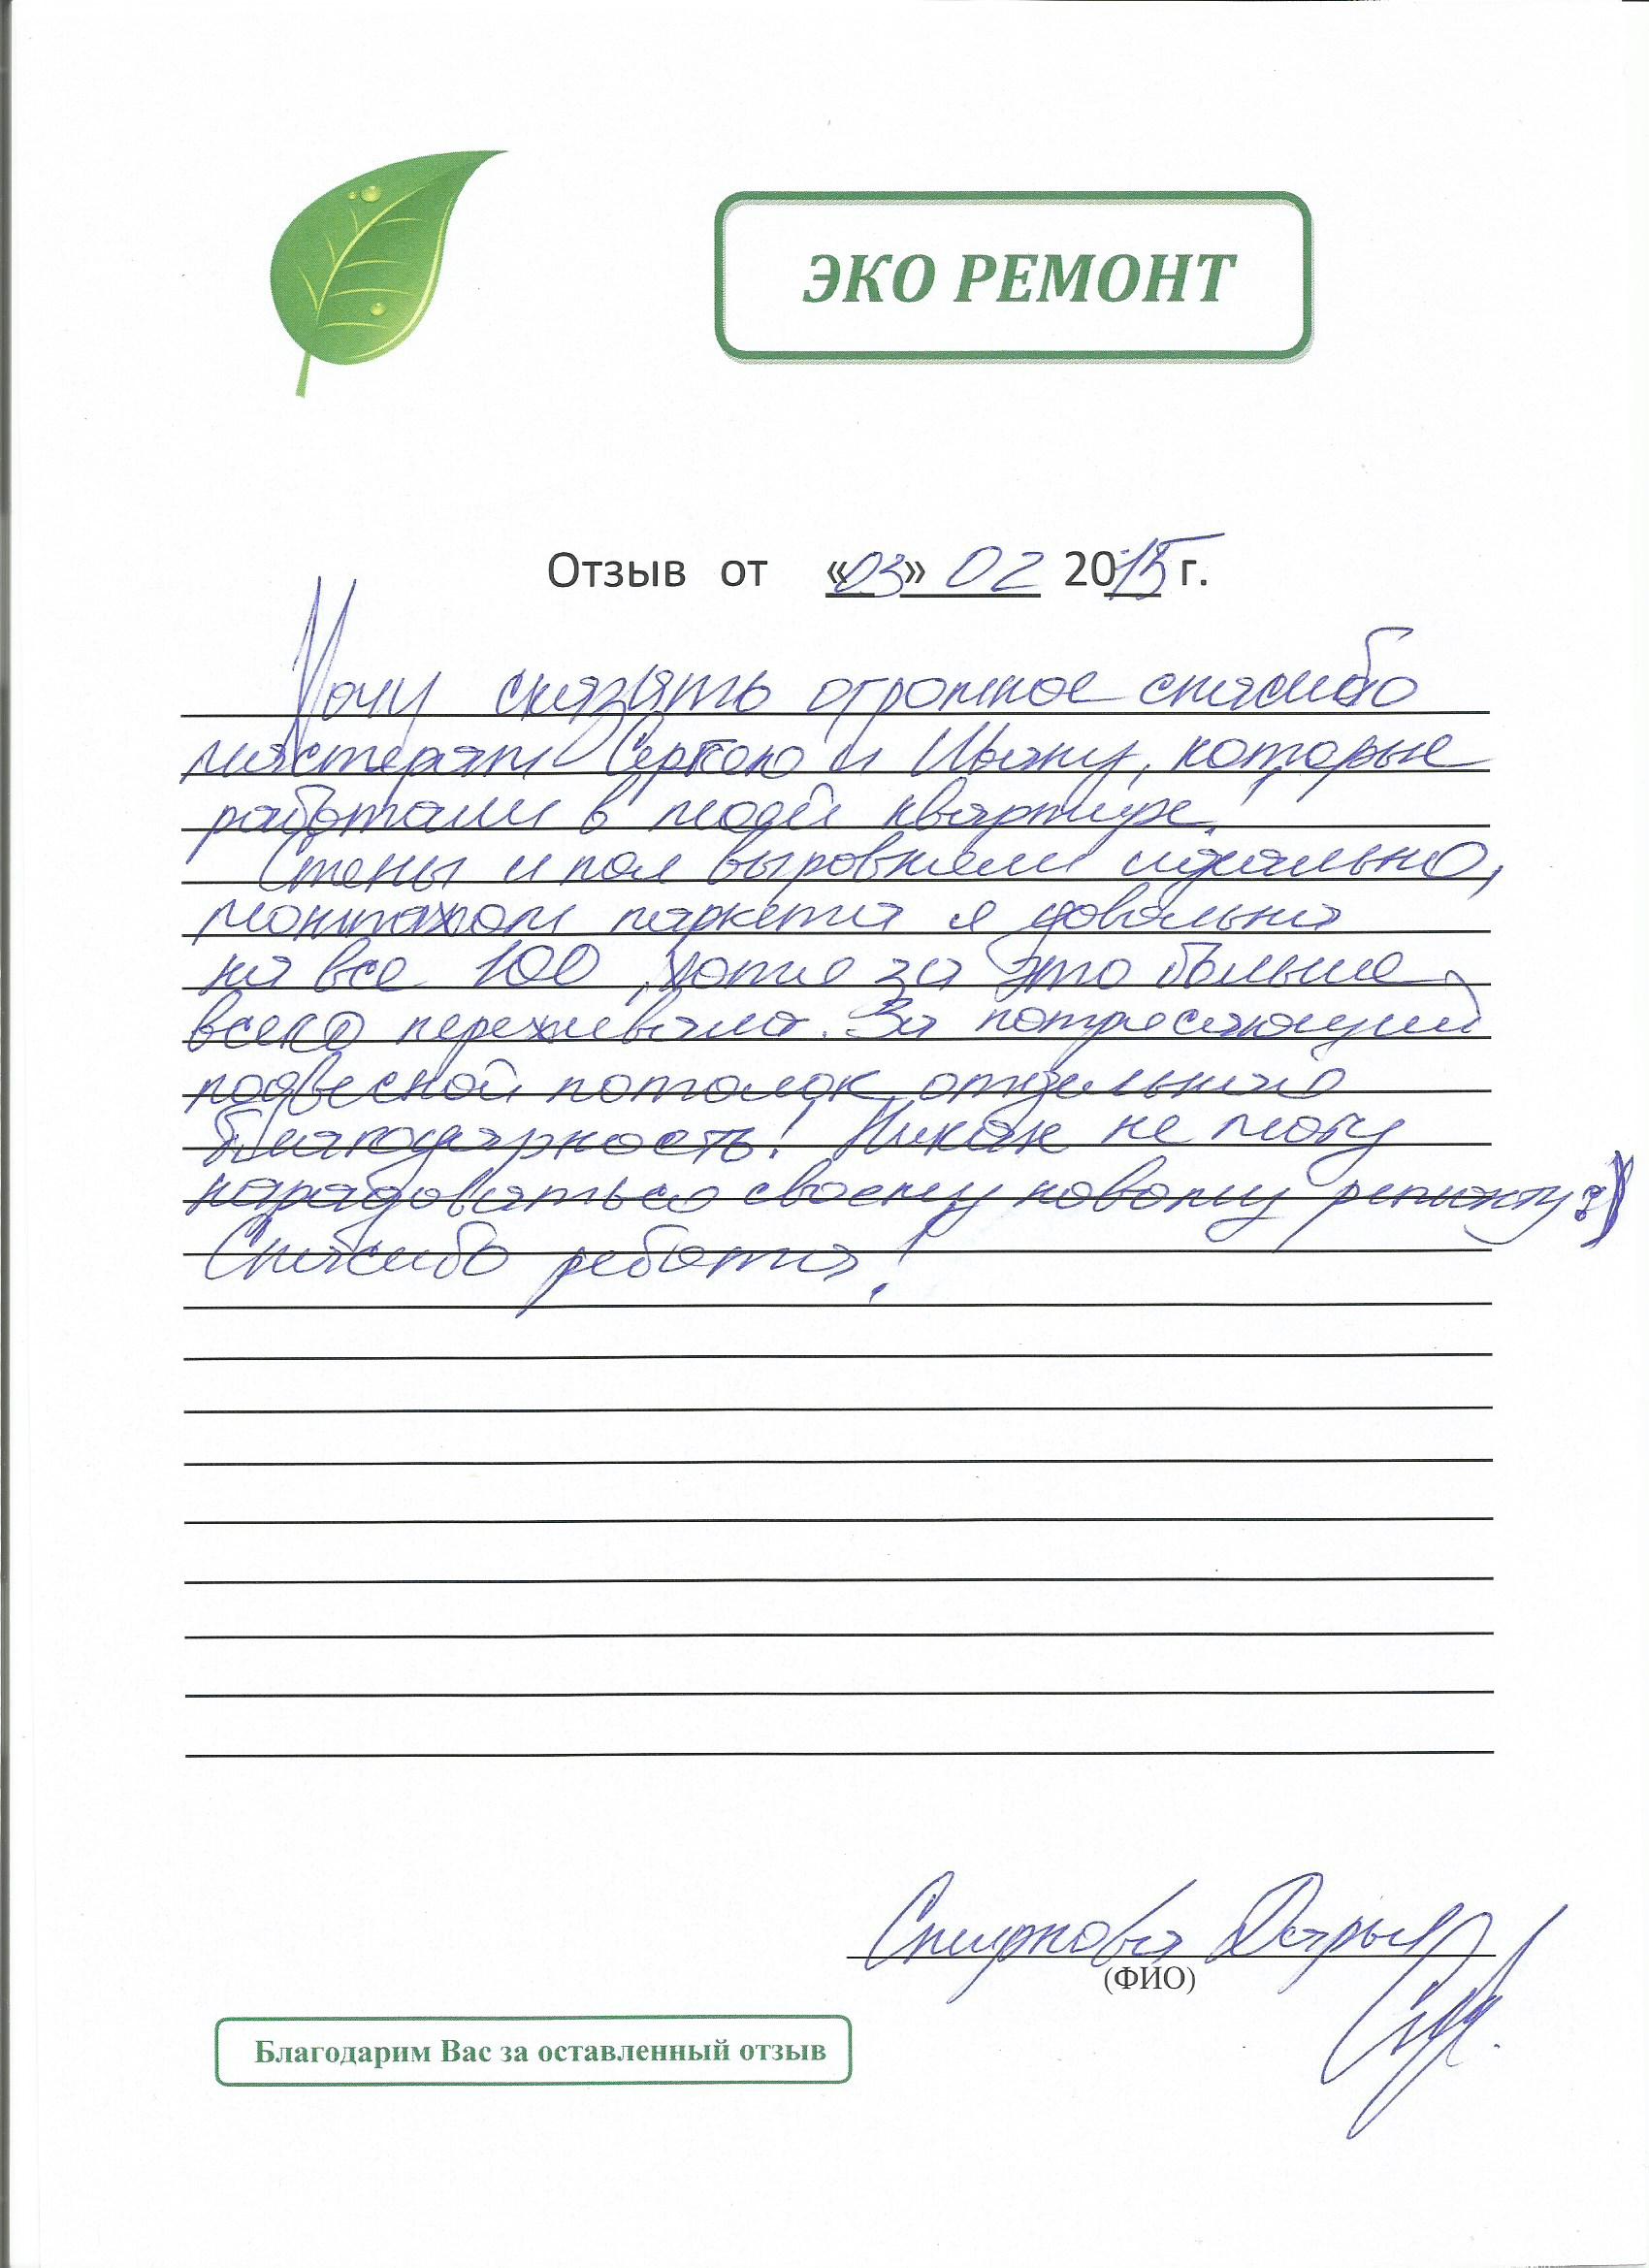 ЭКО РЕМОНТ
Отзыв от «03» 02 2015 г.
Хочу сказать огромное спасибо
мастерам Сергею и Ивану, которые
работали в моей квартире.
Стены и пол выровняли идеально,
монтажом паркета я довольна
на все 100, хотя за это больше
всего переживала. За потрясающий
подвесной потолок отдельно
благодарность! Никак не могу
нарадоваться своему новому ремонту :)
Спасибо ребята!
Смирнова Дарья
(ФИО)
Благодарим Вас за оставленный отзыв